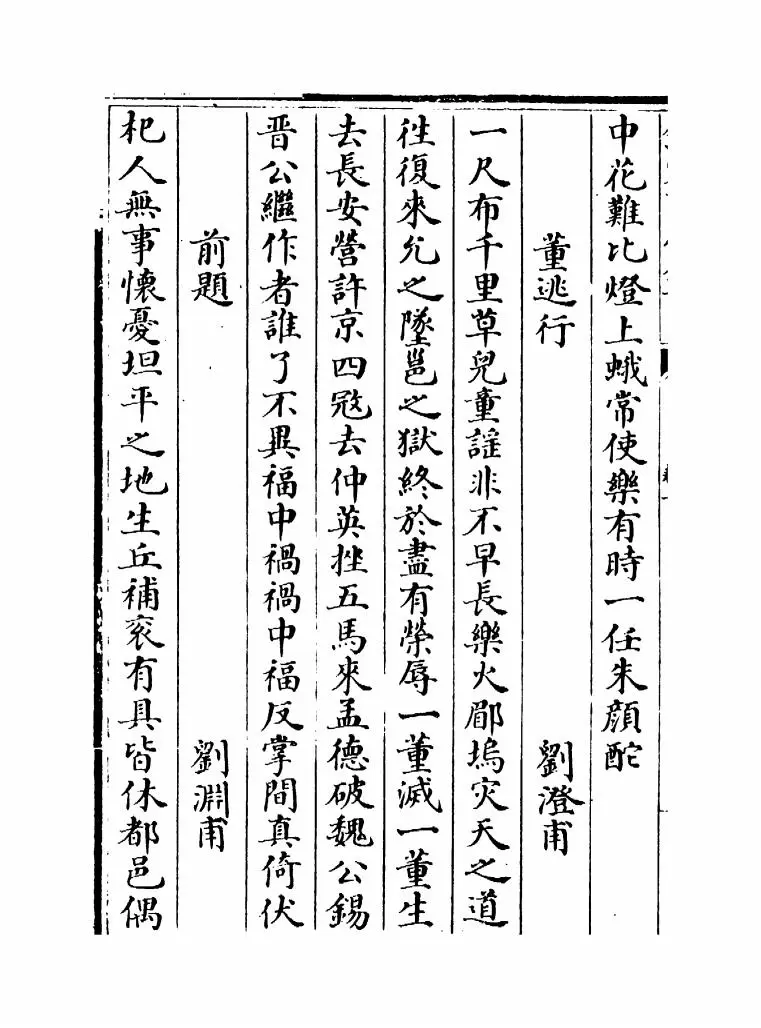 中花難比燈上蛾常使樂有時一任朱顔酡
董逃行　劉澄甫
一尺布千里草兒童謡非不早長樂火郿塢灾天之道
徃復來允之墜邕之獄終於盡有榮辱一董滅一董生
去長安營許京四㓂去仲英挫五馬來孟德破魏公錫
晋公繼作者誰了不異福中禍禍中福反掌間真倚伏
前題　劉淵甫
杞人無事懷憂坦平之地生丘補衮有具皆休都邑偶